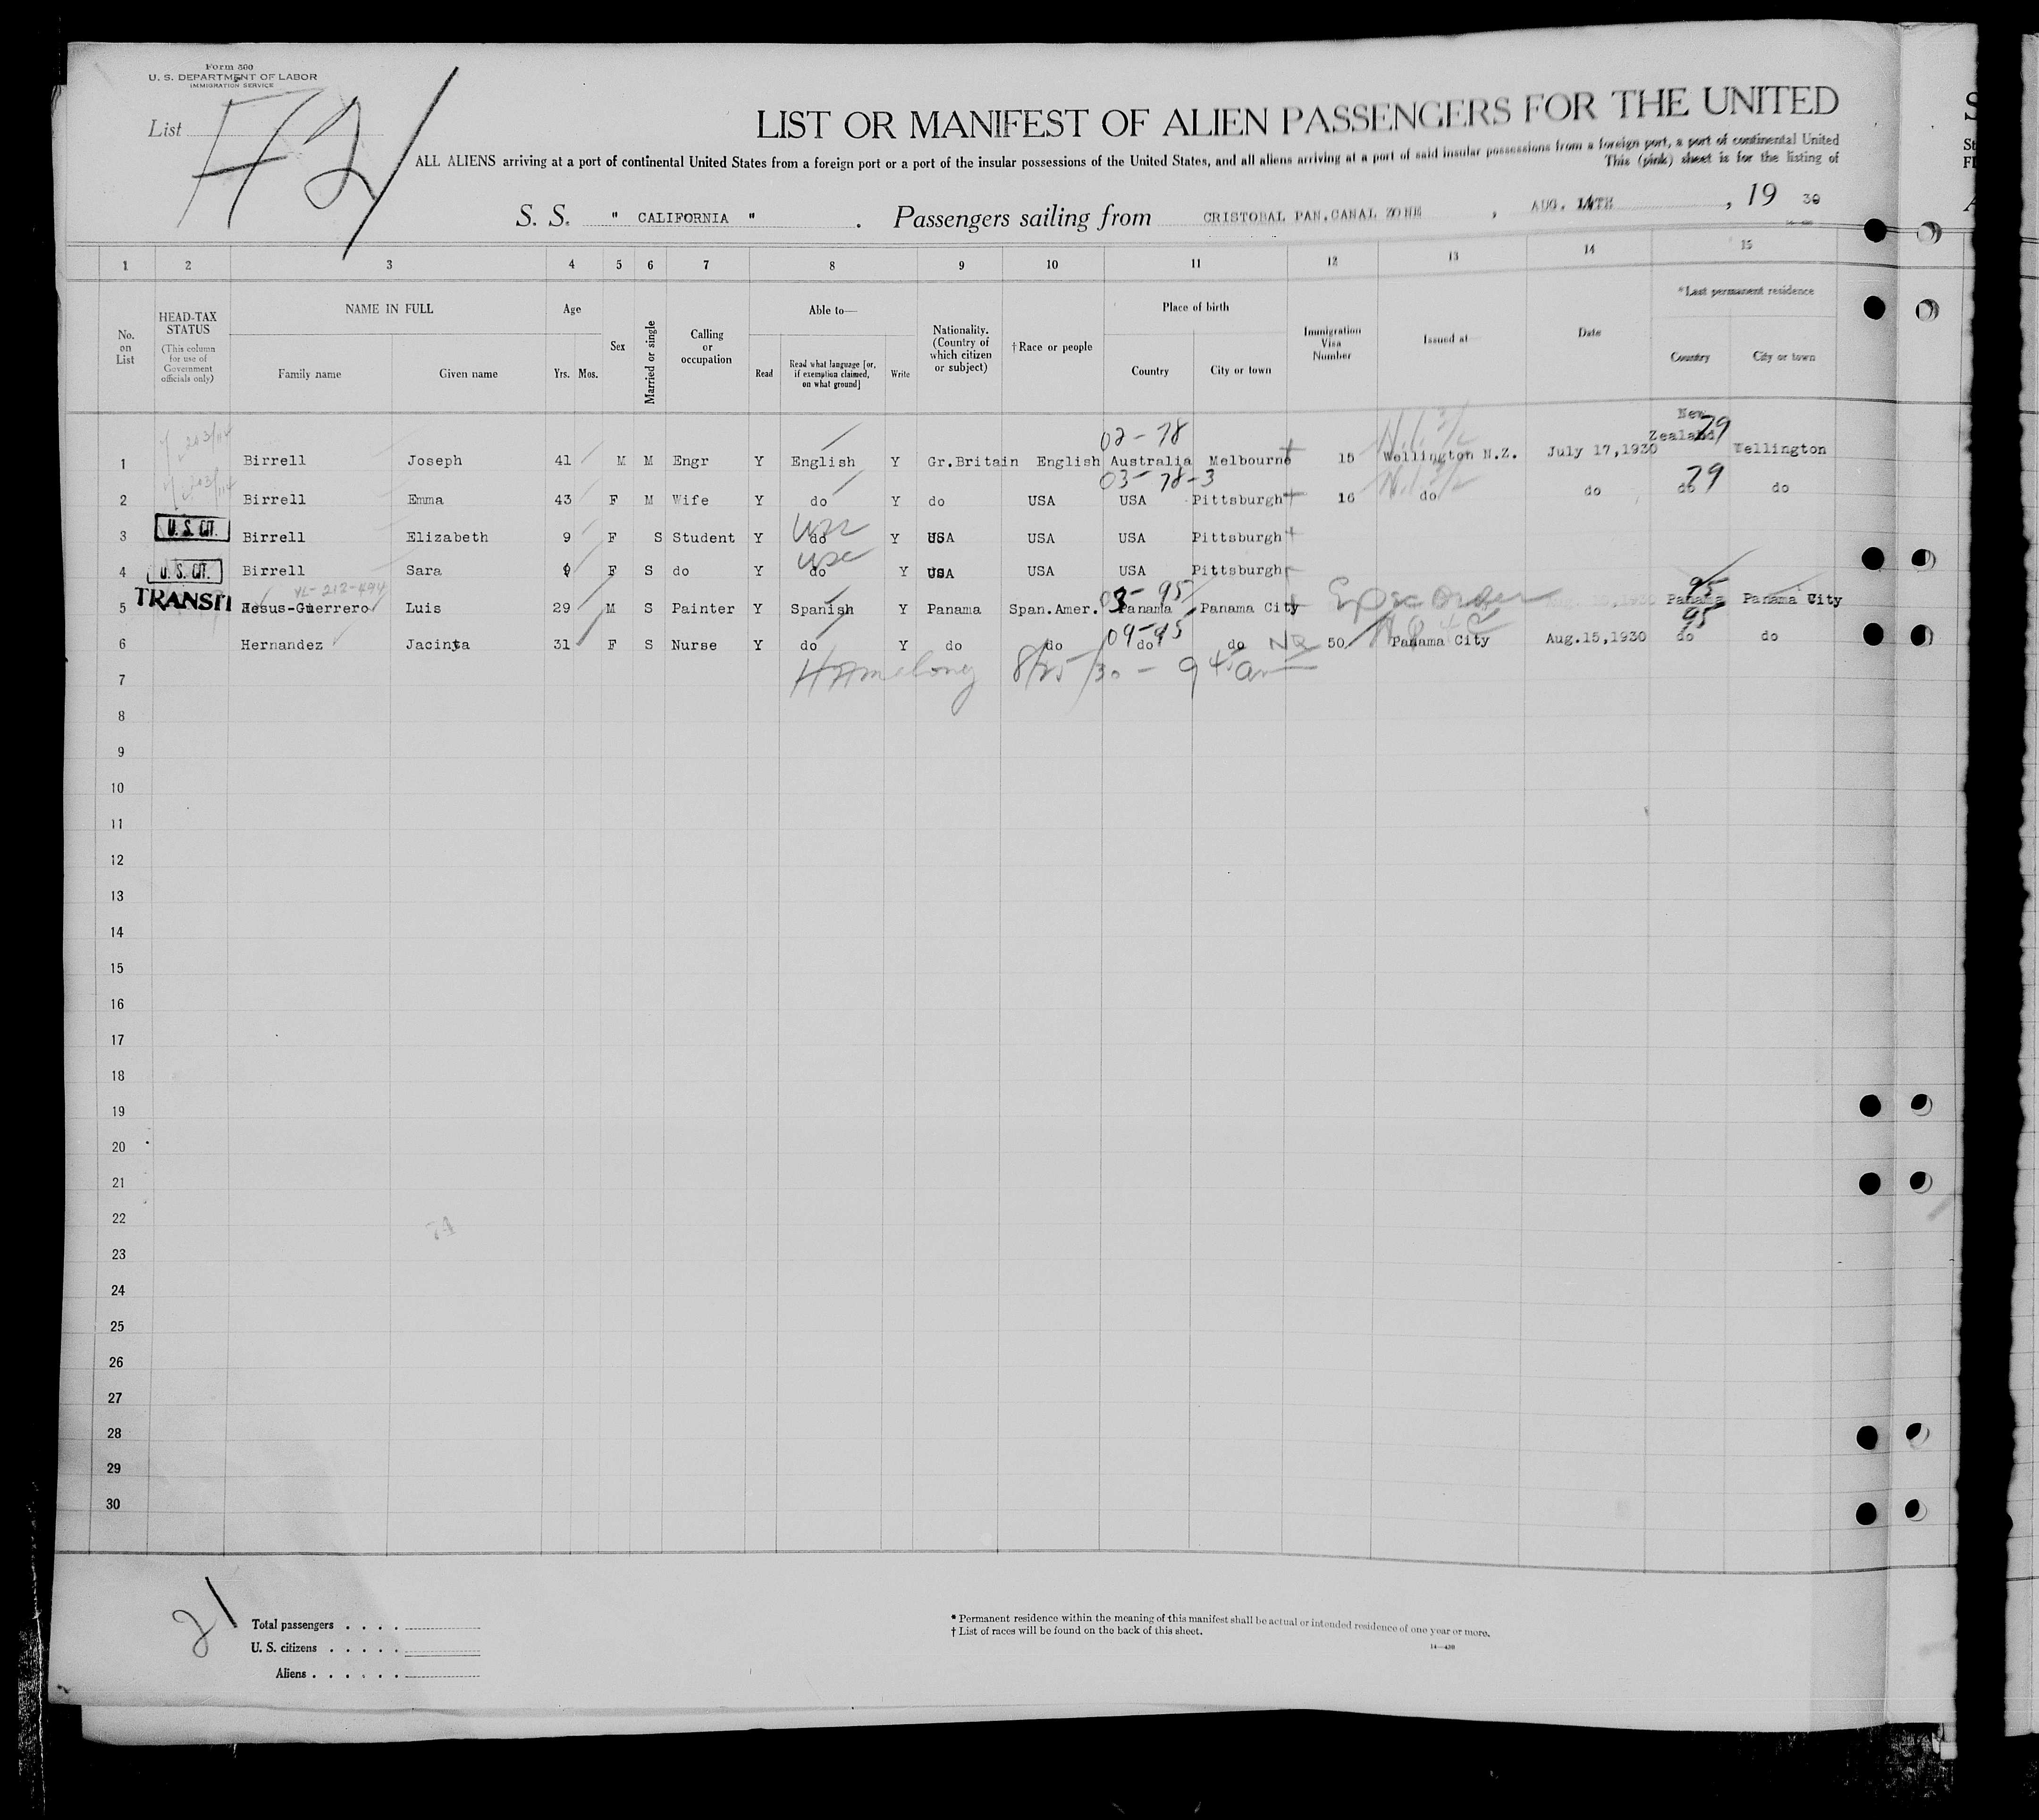 Form 500
U. S. DEPARTMENT OF LABOR
IMMIGRATION SERVICE
List
LIST OR MANIFEST OF ALIEN PASSENGERS FOR THE UNITED
ALL ALIENS arriving at a port of continental United States from a foreign port or a port of the insular possessions of the United States, and all aliens arriving at a port of said insular possessions from a foreign port, a port of continental United
This (pink) sheet is for the listing of
S. S. " CALIFORNIA " . Passengers sailing from CRISTOBAL PAN.CANAL ZONE , AUG. 14TH , 19 30
1 2 3 4 5 6 7 8 9 10 11 12 13 14 15
No. on List
HEAD-TAX STATUS
(This column for use of Government officials only)
NAME IN FULL
Family name Given name
Age
Yrs. Mos.
Sex
Married or single
Calling or occupation
Able to—
Read
Read what language [or, if exemption claimed, on what ground]
Write
Nationality. (Country of which citizen or subject)
†Race or people
Place of birth
Country City or town
Immigration Visa Number
Issued at
Date
*Last permanent residence
Country City or town
02-78 New 79
1 Birrell Joseph 41 M M Engr Y English Y Gr.Britain English Australia Melbourne 15 Wellington N.Z. July 17,1930 Zealand Wellington
03-78-3 79
2 Birrell Emma 43 F M Wife Y do Y do USA USA Pittsburgh 16 do do do do
U.S. CIT. usc
3 Birrell Elizabeth 9 F S Student Y do Y USA USA USA Pittsburgh
U.S. CIT. usc
4 Birrell Sara F S do Y do Y USA USA USA Pittsburgh
TRANSIT 95 95
5 Jesus-Guerrero Luis 29 M S Painter Y Spanish Y Panama Span.Amer. Panama Panama City Panama Panama City
09-95 95
6 Hernandez Jacinta 31 F S Nurse Y do Y do do do do NQ 50 Panama City Aug.15,1930 do do
7 8/25/30 - 9 45 am
8
9
10
11
12
13
14
15
16
17
18
19
20
21
22
23
24
25
26
27
28
29
30
21
Total passengers . . . .
U. S. citizens . . . . .
Aliens . . . . . .
* Permanent residence within the meaning of this manifest shall be actual or intended residence of one year or more.
† List of races will be found on the back of this sheet.
14—430